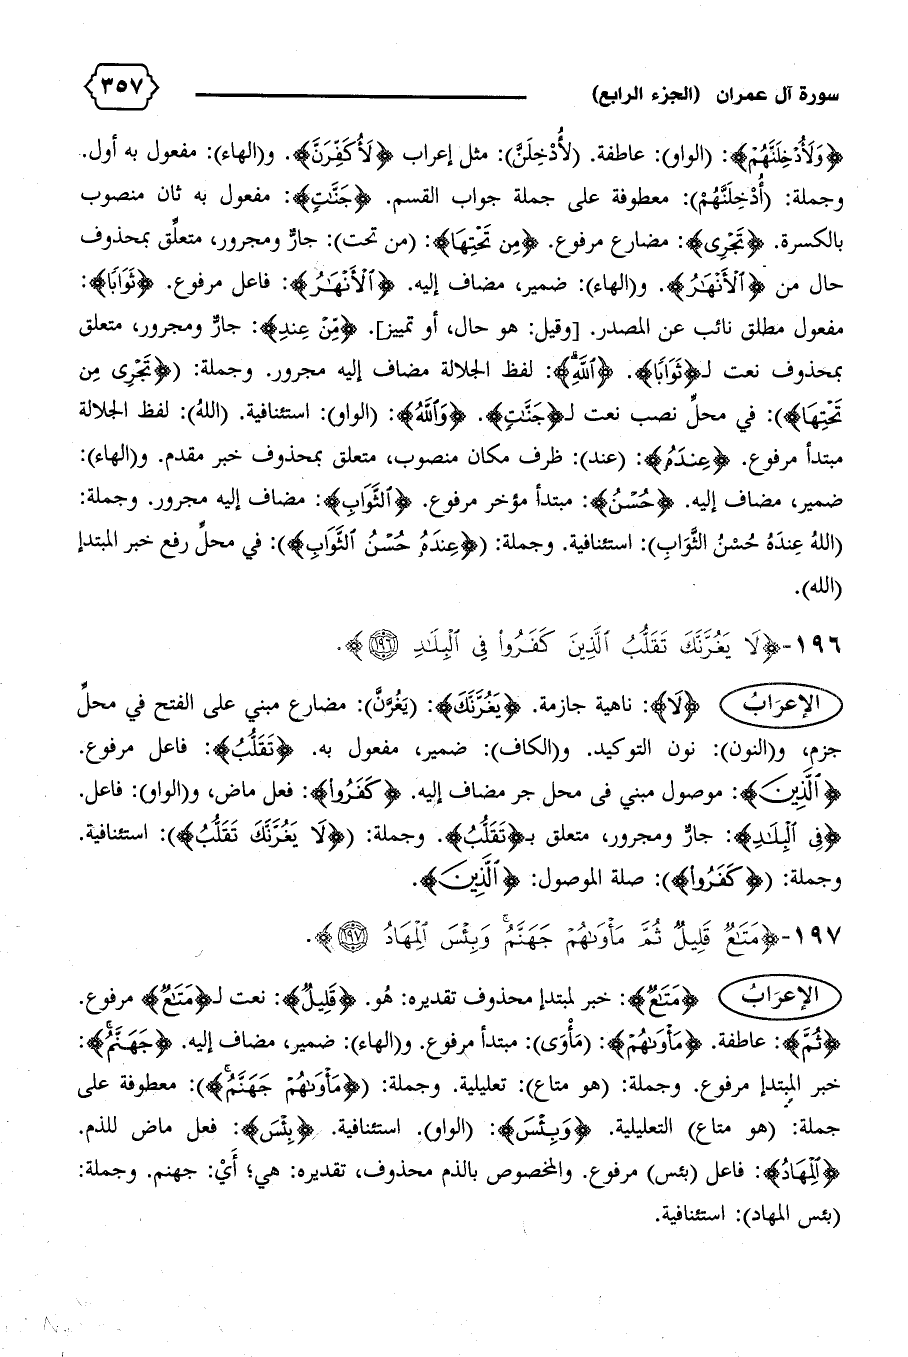 سورة آل عمران (الجزء الرابع)
٣٥٧
﴿وَلَأُدْخِلَنَّهُمْ﴾: (الواو): عاطفة. (لأُدْخِلَنَّ): مثل إعراب ﴿لَأُكَفِّرَنَّ﴾. و(الهاء): مفعول به أول.
وجملة: (أُدْخِلَنَّهُمْ): معطوفة على جملة جواب القسم. ﴿جَنَّٰتٍ﴾: مفعول به ثان منصوب
بالكسرة. ﴿تَجْرِى﴾: مضارع مرفوع. ﴿مِن تَحْتِهَا﴾: (من تحت): جارٌّ ومجرور، متعلِّق بمحذوف
حال من ﴿ٱلْأَنْهَٰرُ﴾. و(الهاء): ضمير، مضاف إليه. ﴿ٱلْأَنْهَٰرُ﴾: فاعل مرفوع. ﴿ثَوَابًا﴾:
مفعول مطلق نائب عن المصدر. [وقيل: هو حال، أو تمييز]. ﴿مِّنْ عِندِ﴾: جارٌّ ومجرور، متعلق
بمحذوف نعت لـ﴿ثَوَابًا﴾. ﴿ٱللَّهِ﴾: لفظ الجلالة مضاف إليه مجرور. وجملة: (﴿تَجْرِى مِن
تَحْتِهَا﴾): في محلِّ نصب نعت لـ﴿جَنَّٰتٍ﴾. ﴿وَٱللَّهُ﴾: (الواو): استئنافية. (اللهُ): لفظ الجلالة
مبتدأ مرفوع. ﴿عِندَهُۥ﴾: (عند): ظرف مكان منصوب، متعلق بمحذوف خبر مقدم. و(الهاء):
ضمير، مضاف إليه. ﴿حُسْنُ﴾: مبتدأ مؤخر مرفوع. ﴿ٱلثَّوَابِ﴾: مضاف إليه مجرور. وجملة:
(اللهُ عِندَهُ حُسْنُ الثَّوَابِ): استئنافية. وجملة: (﴿عِندَهُۥ حُسْنُ ٱلثَّوَابِ﴾): في محلِّ رفع خبر المبتدإ
(الله).
١٩٦-﴿لَا يَغُرَّنَّكَ تَقَلُّبُ ٱلَّذِينَ كَفَرُوا۟ فِى ٱلْبِلَٰدِ ١٩٦﴾.
الإعرَابُ ﴿لَا﴾: ناهية جازمة. ﴿يَغُرَّنَّكَ﴾: (يَغُرَّنَّ): مضارع مبني على الفتح في محلِّ
جزم، و(النون): نون التوكيد. و(الكاف): ضمير، مفعول به. ﴿تَقَلُّبُ﴾: فاعل مرفوع.
﴿ٱلَّذِينَ﴾: موصول مبني فى محل جر مضاف إليه. ﴿كَفَرُوا۟﴾: فعل ماض، و(الواو): فاعل.
﴿فِى ٱلْبِلَٰدِ﴾: جارٌّ ومجرور، متعلق بـ﴿تَقَلُّبُ﴾. وجملة: (﴿لَا يَغُرَّنَّكَ تَقَلُّبُ﴾): استئنافية.
وجملة: (﴿كَفَرُوا۟﴾): صلة الموصول: ﴿ٱلَّذِينَ﴾.
١٩٧-﴿مَتَٰعٌ قَلِيلٌ ثُمَّ مَأْوَىٰهُمْ جَهَنَّمُ ۚ وَبِئْسَ ٱلْمِهَادُ ١٩٧﴾.
الإعرَابُ ﴿مَتَٰعٌ﴾: خبر لمبتدإ محذوف تقديره: هُو. ﴿قَلِيلٌ﴾: نعت لـ﴿مَتَٰعٌ﴾ مرفوع.
﴿ثُمَّ﴾: عاطفة. ﴿مَأْوَىٰهُمْ﴾: (مَأْوَى): مبتدأ مرفوع. و(الهاء): ضمير، مضاف إليه. ﴿جَهَنَّمُ ۚ﴾:
خبر المبتدإ مرفوع. وجملة: (هو متاع): تعليلية. وجملة: (﴿مَأْوَىٰهُمْ جَهَنَّمُ ۚ﴾): معطوفة على
جملة: (هو متاع) التعليلية. ﴿وَبِئْسَ﴾: (الواو). استئنافية. ﴿بِئْسَ﴾: فعل ماض للذم.
﴿ٱلْمِهَادُ﴾: فاعل (بئس) مرفوع. والمخصوص بالذم محذوف، تقديره: هي؛ أَيْ: جهنم. وجملة:
(بئس المهاد): استئنافية.